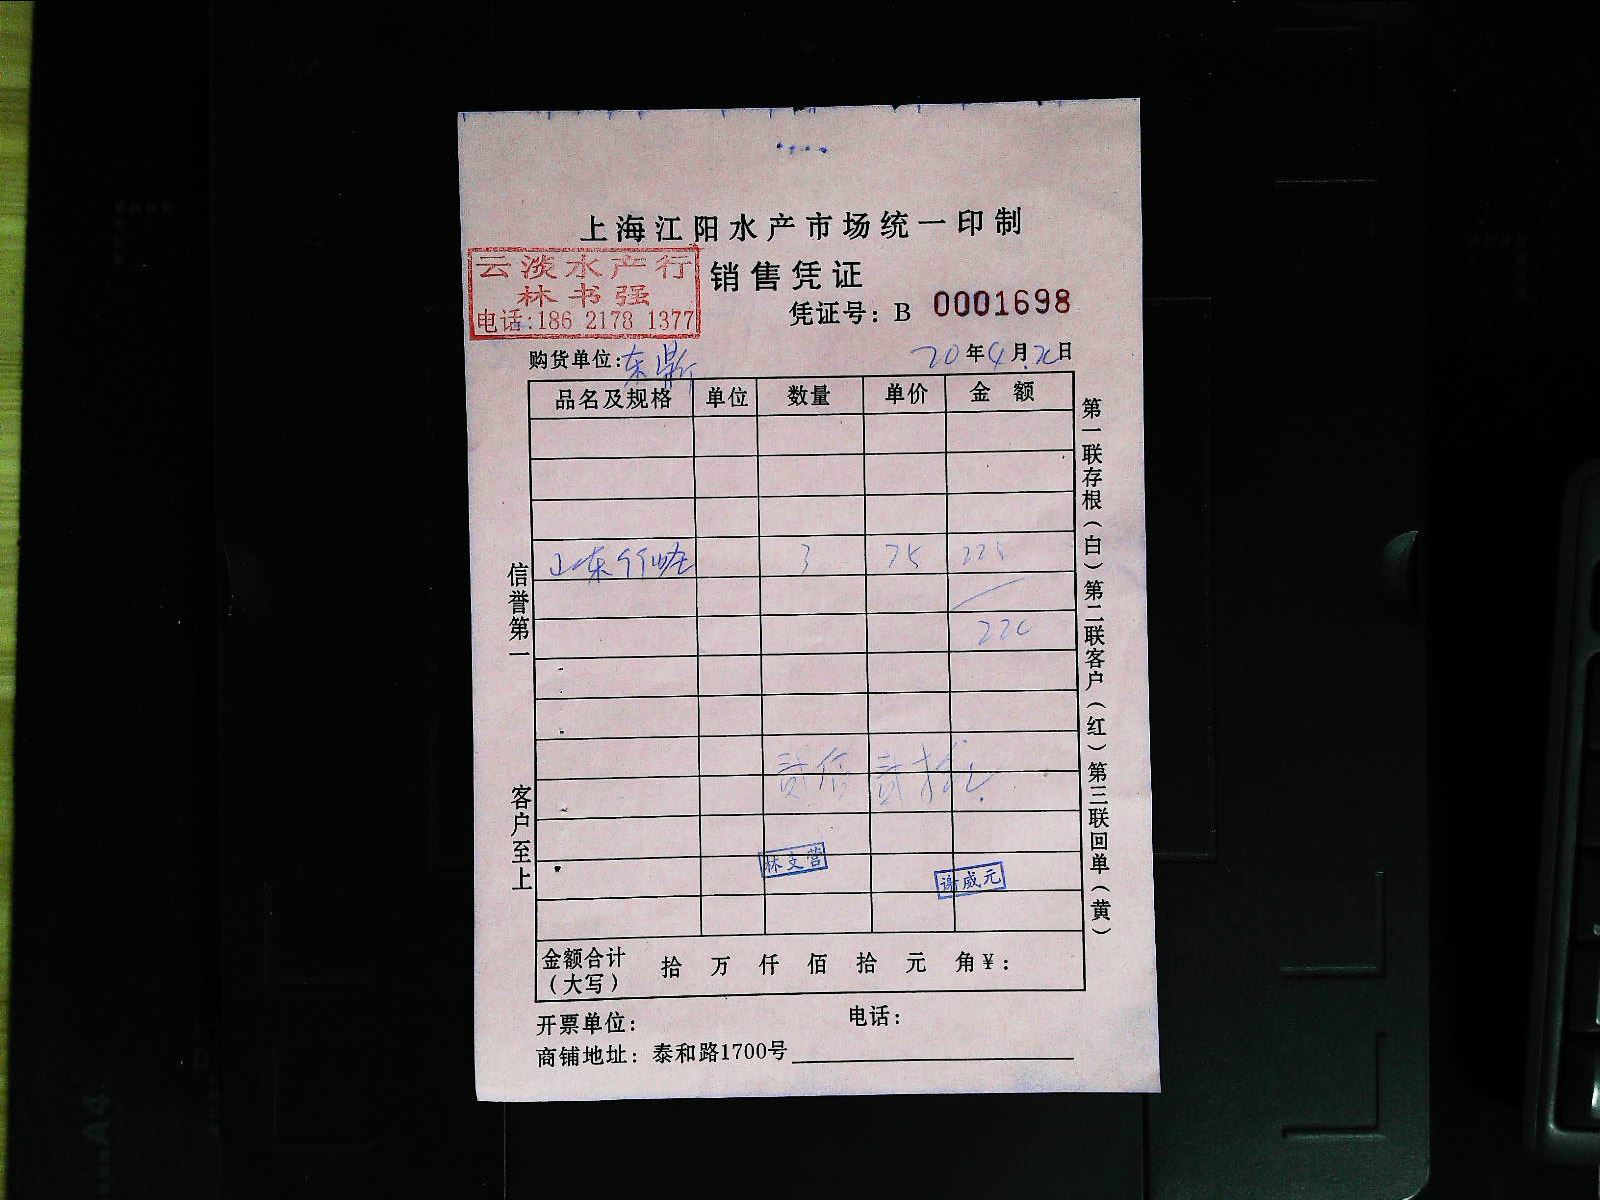 上海江阳水产市场统一印制
云淡水产行
林书强
电话:186 2178 1377
销售凭证
凭证号：B 0001698
购货单位:东鼎
20年4月 日
品名及规格 单位 数量 单价 金额
山东 3 75 225
220
贰佰贰拾
林支营
谢威元
金额合计（大写） 拾 万 仟 佰 拾 元 角￥：
开票单位： 电话：
商铺地址：泰和路1700号
信誉第一
客户至上
第一联存根（白）第二联客户（红）第三联回单（黄）
A4